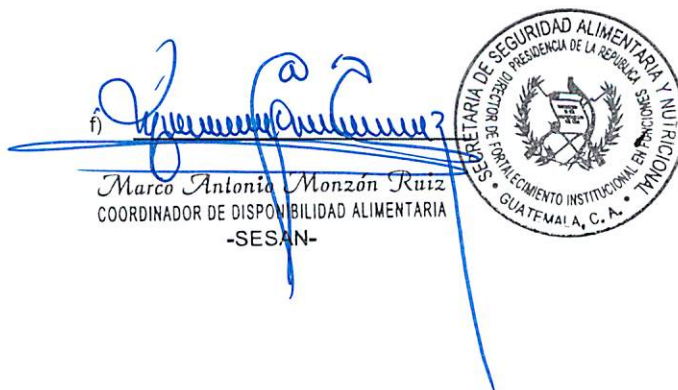 f)
Marco Antonio Monzón Ruiz
COORDINADOR DE DISPONIBILIDAD ALIMENTARIA
-SESAN-
SECRETARIA DE SEGURIDAD ALIMENTARIA Y NUTRICIONAL
PRESIDENCIA DE LA REPUBLICA
DIRECTOR DE FORTALECIMIENTO INSTITUCIONAL EN FUNCIONES
GUATEMALA, C. A.